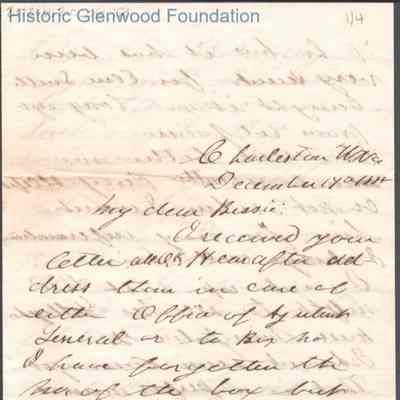 Historic Glenwood Foundation
1/4
Charleston W.Va
December
My dear Bessie:
I received your
letter all O.K. Hereafter ad
dress them in care of
either Office of Adjutant
General or to Box no
I have forgotten the
no of the box but